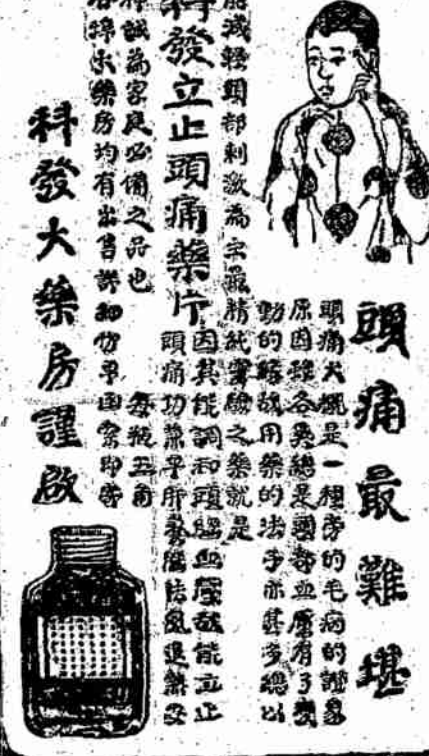 頭痛最難堪
頭痛大概是一種旁的毛病的證象
原因雖各異總是頭部血壓有了變
動的緣故用藥的法子亦甚多總以
能減輕頭部刺激為宗最精純靈驗之藥就是
科發立止頭痛藥片
因其能調和頭腦血壓故能立止
頭痛功
誠為家庭必備之品也
每瓶五角
藥房均有出售詳細仿單函索即寄
科發大藥房謹啟